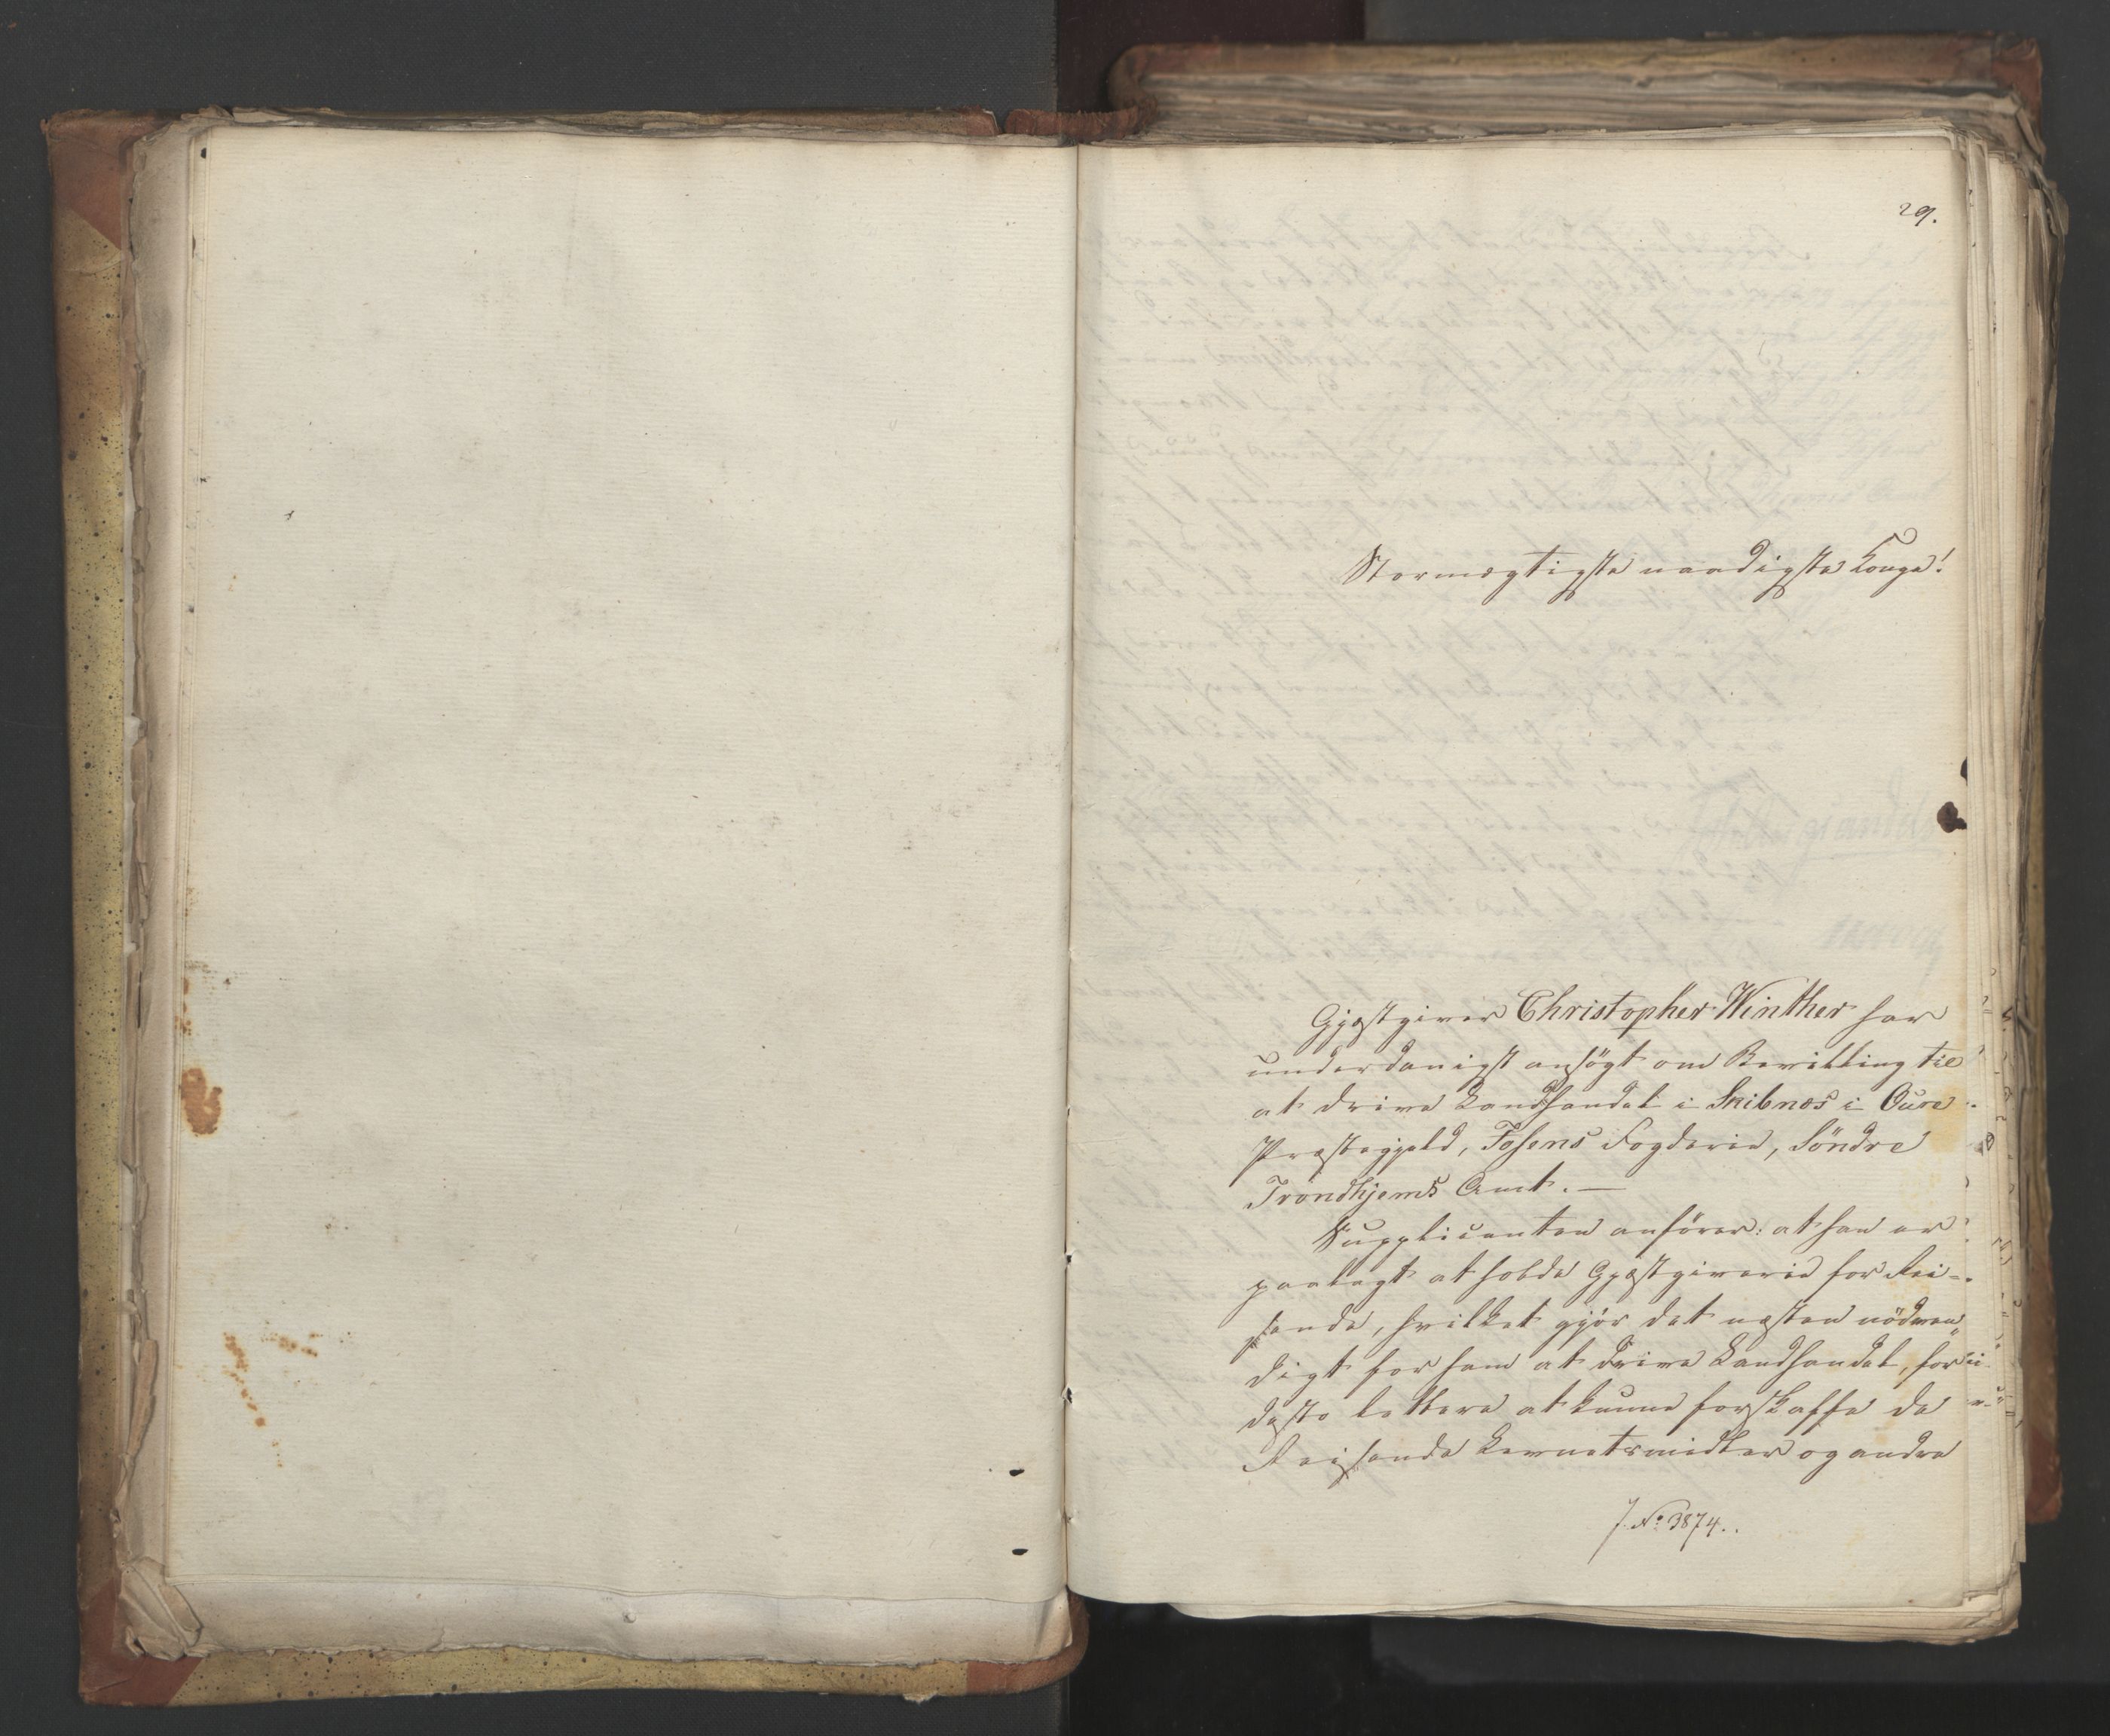 29.
Stormægtigste naadigste Konge!
Gjæstgiver Christopher Winther har
underdanigst ansögt om Bevilling til
at drive Landhandel i Skibnes i Oure
Præstegjæld, Fosens Fogderie, Söndre
Trondhjems Amt. —
Supplicanten anförer: at han er
paalagt at holde Gjæstgiverie for Rei-
sende, hvilket gjör det næsten nödven„
digt for ham at drive Landhandel, for
desto lettere at kunne forskaffe de
Reisende Levnetsmidler og andre
J. No 3874.